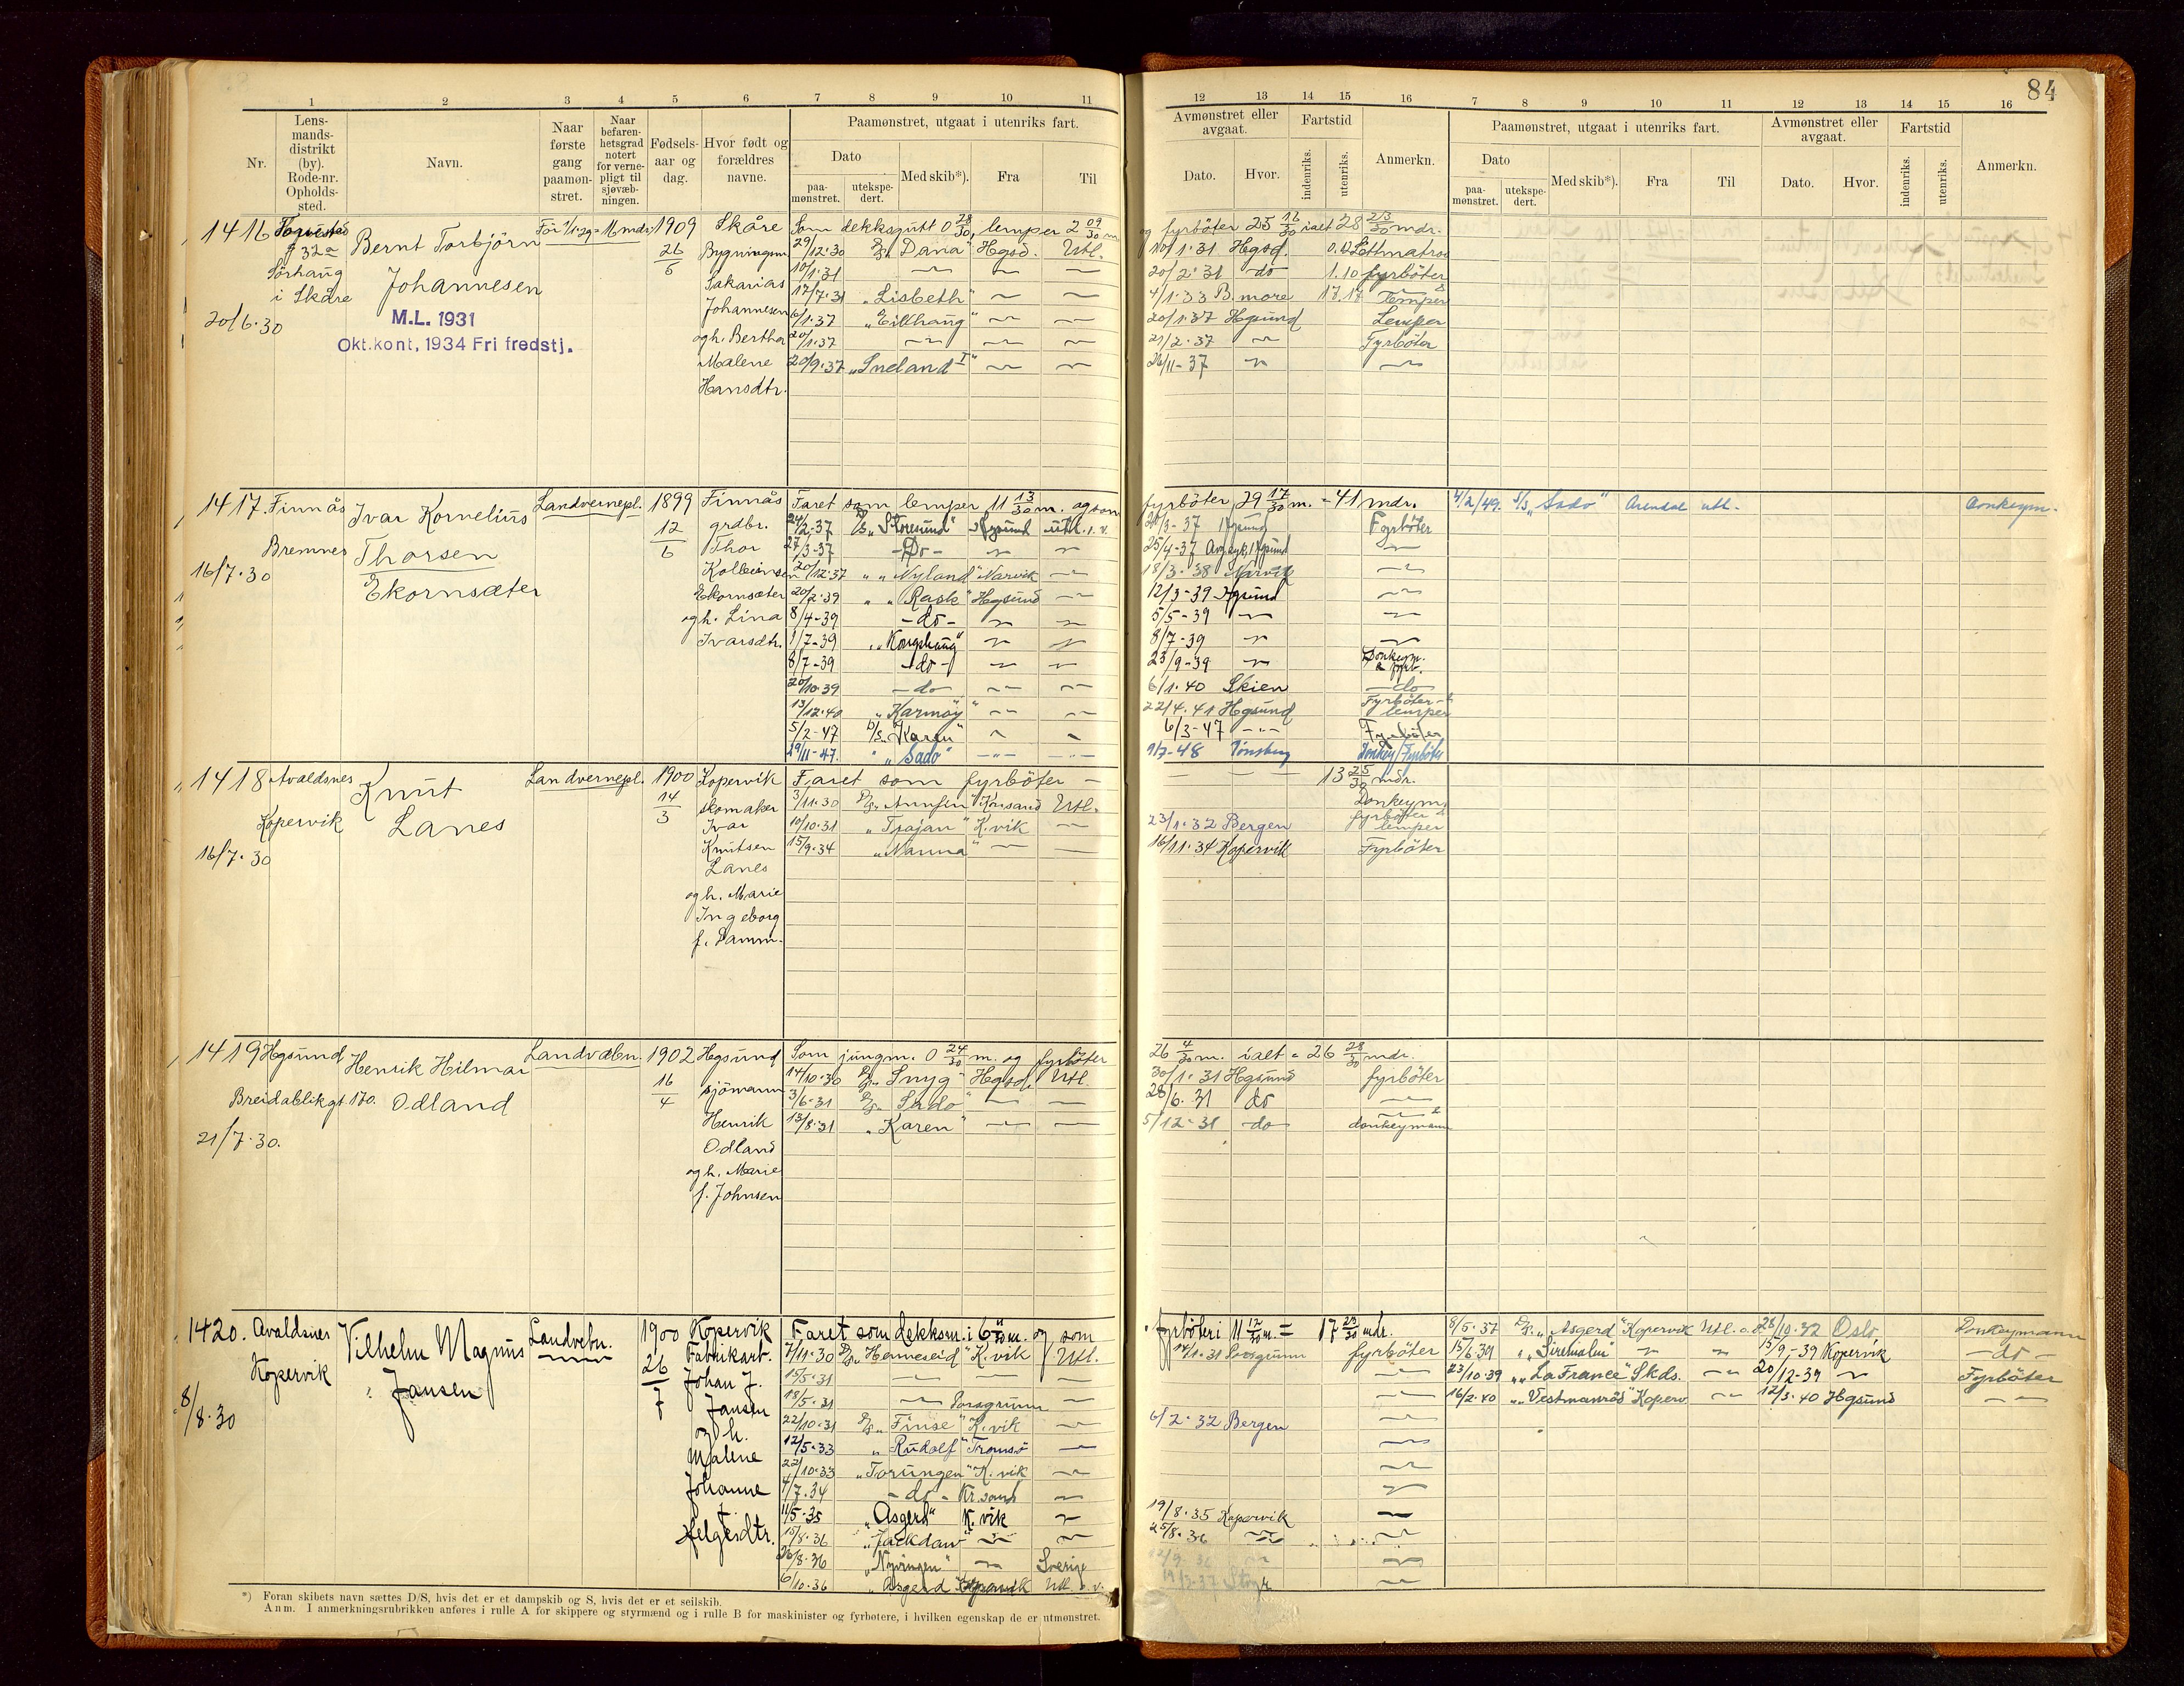 84
1 2 3 4 5 6 7 8 9 10 11
12 13 14 15 16 7 8 9 10 11 12 13 14 15 16
Nr.
Lens-
mands-
distrikt
(by).
Rode-nr.
Opholds-
sted.
Navn.
Naar
første
gang
paamøn-
stret.
Naar
befaren-
hetsgrad
notert
for verne-
pligt til
sjøvæb-
ningen.
Fødsels-
aar og
dag.
Hvor født og
forældres
navne.
Paamønstret, utgaat i utenriks fart.
Dato
paa-
mønstret.
utekspe-
dert.
Med skib*).
Fra
Til
Avmønstret eller
avgaat.
Dato.
Hvor.
Fartstid
indenriks.
utenriks.
Anmerkn.
Paamønstret, utgaat i utenriks fart.
Dato
paa-
mønstret.
utekspe-
dert.
Med skib*).
Fra
Til
Avmønstret eller
avgaat.
Dato.
Hvor.
Fartstid
indenriks.
utenriks.
Anmerkn.
1416
Sørhaug
i Skåre
20/6.30
Bernt Torbjörn
Johannesen
M.L. 1931
Okt.kont, 1934 Fri fredstj.
Før 1/1.29 = 16 mndr.
1909
26
6
Skåre
Bygningsm.
Sakarias
Johannesen
og h. Bertha
Malene
Hansdtr.
Som dekksgutt 0 28/30, lemper 2 09/30 m
og fyrböter 25 16/30 ialt 28 23/30 mdr.
29/12.30 D/S „Dana" Hgsd. Utl. 10/1.31 Hgsd. Lettmatros
10/1.31 — — — 20/2.31 do 1.10 fyrböter
17/7.31 „Lisbeth" — — 4/1.33 B.more 17.17 Lemper
6/1.37 — — 20/1.37 Hgsund Lemper
20/1.37 — — — 21/2.37 — Fyrböter
20/9.37 „Sneland I" — — 26/11-37 — —
1417. Finnås
Bremnes
16/7.30
Ivar Kornelius
Thorsen
Ekornsæter
Landvernepl.
1899
12
6
Finnås
grdbr.
Thor
Kolbeinsen
Ekornsæter
og h. Lina
Ivarsdtr.
Faret som lemper 11 13/30 m. og som
fyrböter 29 17/30 m. = 41 mdr.
24/2-37 D/S „Storesund" Hgsund utl. 1.v. Hgsund Fyrböter
27/3-37 -Do- — — 25/4-37 Hgsund —
20/12.37 „ „Nyland" Narvik — 18/3.38 Narvik —
20/2.39 „ „Rask" Hgsund — 12/3-39 Hgsund —
8/4-39 -do- — — 5/5-39 — —
1/7-39 „Korgshaug" — — 8/7-39 — —
8/7-39 -do- — — 23/9-39 — Donkeym. & fyrb.
20/10.39 -do — — 6/1.40 Skien -do-
13/12.40 „Karmøy" — — 22/4.41 Hgsund Fyrböter & lemper
5/2-47 D/S „Karen" — — 6/3-47 -"- Fyrböter
29/11-47. „ „Sado" -"- -"- 9/7-48 Tønsberg Donkey/Fyrböter
4/2/49. D/S „Sado" Arendal utl. Donkeym.
1418 Avaldsnes
Kopervik
16/7.30
Knut
Lanes
Landvernepl.
1900
14
3
Kopervik
skomaker
Ivar
Knutsen
Lanes
og h. Marie
Ingeborg
f. Damm.
Faret som fyrböter — 13 25/30 mdr.
3/11.30 D/S „Annfin" Krisand Utl. Donkeym.
10/10.31 „Trajan" K.vik — 23/1.32 Bergen fyrböter & lemper
15/9.34 „Nanna" — — 16/11.34 Kopervik Fyrböter
1419 Hgsund
Breidablikgt 170.
21/7.30.
Henrik Hilmar
Odland
Landvæbn.
1902
16
4
Hgsund
sjømann
Henrik
Odland
og h. Marie
f. Johnsen
Som jungm. 0 24/30 m. og fyrböter
26 4/30 m. ialt = 26 28/30 mdr.
14/10.30 D/S „Snyg" Hgsd. Utl. 30/1.31 Hgsund fyrböter
3/6.31 D/S „Sado" — — 28/6.31 do —
13/8.31 „Karen" — — 5/12.31 -do- donkeymann
1420. Avaldsnes
Kopervik
8/8.30
Vilhelm Magnus
Jansen
Landvebn.
1900
26
7
Kopervik
Fabrikarb.
Johan J.
Jansen
og h.
Malene
Johanne
Helgesdtr.
Faret som dekksm. i 6 11/30 m. og som
fyrböter i 11 12/30 m. = 17 23/30 mdr.
7/11.30 D/S „Henneseid" K.vik Utl. 14/1.31 Porsgrunn fyrböter
15/5.31 — — — —
18/5.31 — Porsgrunn — —
22/10.31 D/S „Finse" K.vik — 6/2.32 Bergen —
12/5.33 „Rudolf" Tromsø — —
22/10.33 „Torungen" K.vik — —
4/7.34 -do- Kr.sand — —
11/5.35 „Asgerd" K.vik — 19/8.35 Kopervik —
15/8.36 „Jackdaw" — — 25/8.36 — —
26/8.36 „Nyvingen" — Sverige —
6/10.36 „Asgerd" Kopervik Utl. —
8/5.37 D/S „Asgerd" Kopervik Utl. Oslo, Donkeymann
15/6.39 „Sireholm" — — 15/9,-39 Kopervik -do-
23/10.39 „La France" Skds. — 20/12-39 — Fyrböter
16/2.40 „Vestmanrød" Koperv. — 12/3.40 Hgsund —
*) Foran skibets navn sættes D/S, hvis det er et dampskib og S, hvis det er et seilskib.
Anm. I anmerkningsrubrikken anføres i rulle A for skippere og styrmænd og i rulle B for maskinister og fyrbøtere, i hvilken egenskap de er utmønstret.